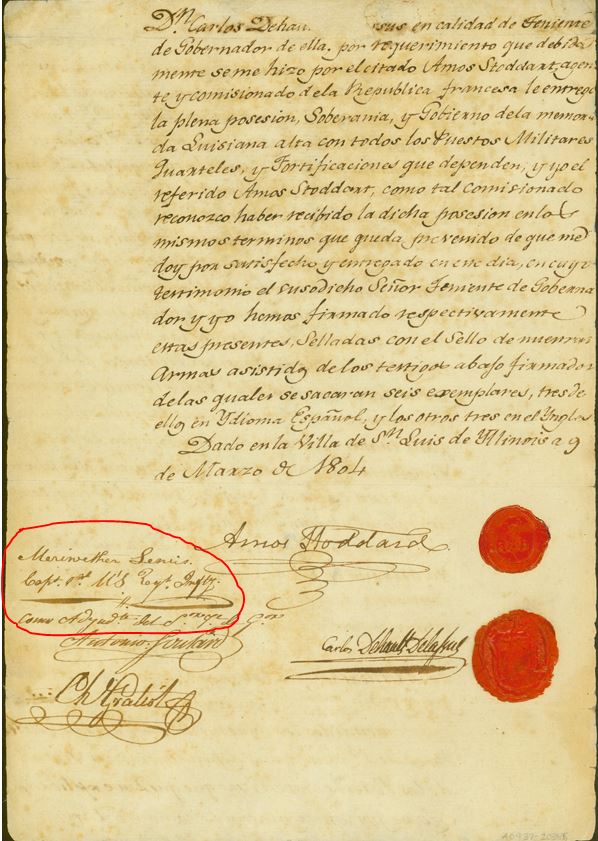 Dⁿ Carlos Dehau sus en calidad de Teniente
de Gobernador de ella, por requerimiento que debida
mente se me hizo por el citado Amos Stoddart, agen
te y comisionado de la Republica francesa le entrego
la plena posesion, Soberania, y Gobierno de la mencona
da Luisiana alta con todos los Puestos Militares
Quarteles, y Fortificaciones que dependen, y yo el
referido Amos Stoddart, como tal Comisionado
reconozco haber recibido la dicha posesion en los
mismos terminos que queda prevenido de que me
doy por satisfecho y entregado en este dia, en cuyo
testimonio el susodicho Señor Teniente de Goberna
dor y yo hemos firmado respectivamente
estas presentes, Selladas con el Sello de nuestras
Armas asistidos de los testigos abajo firmados
de las quales se sacaran seis exemplares, tres de
ellos en Ydioma Español, y los otros tres en el Yngles
Dado en la Villa de Sⁿ Luis de Ylinois a 9
de Marzo de 1804
Amos Stoddard
Meriwether Lewis.
Capt. 1st U'S Regt. Infty.
Como Adyudte del
Antonio Soulard
Carlos Dehault Delassus
Ch Gratiot
A0937-